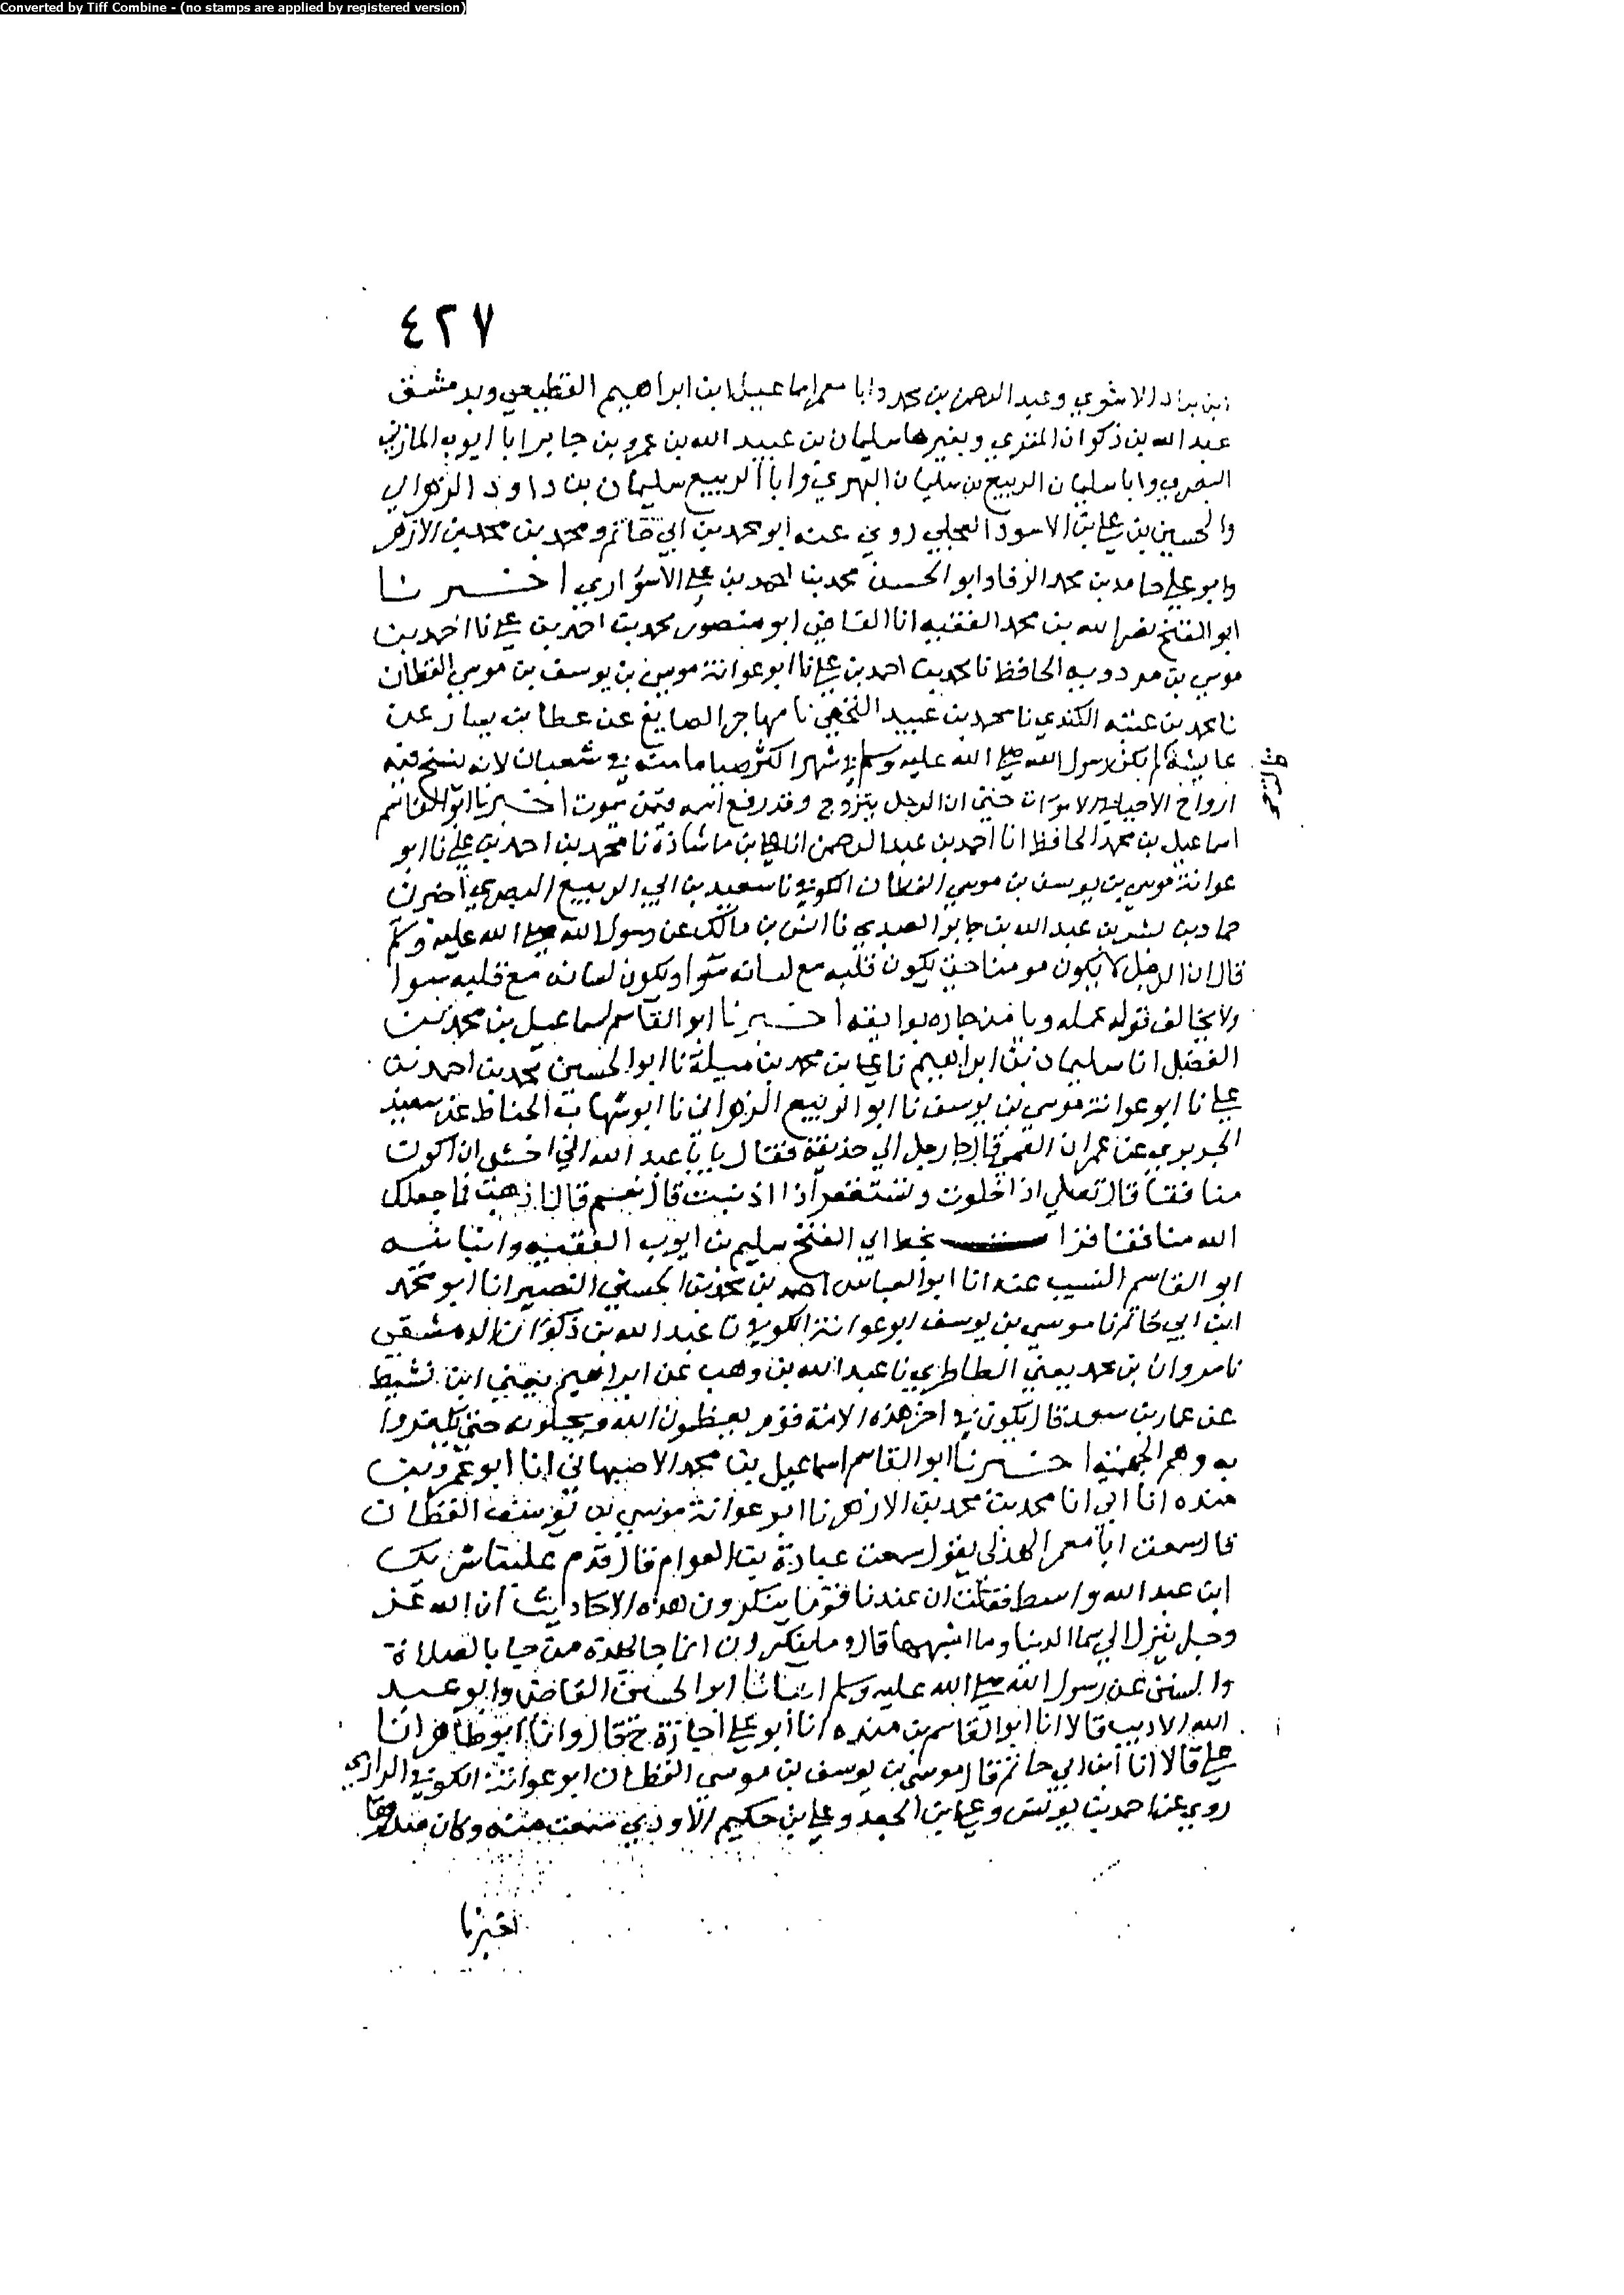 Converted by Tiff Combine - (no stamps are applied by registered version)
٤٢٧
ابن براد الاشعري وعبد الرحمن بن محمد وابا معمر اسماعيل ابن ابراهيم القطيعي وبدمشق
عبد الله بن ذكوان المقري وبغيرها سليمان بن عبيد الله بن عمرو بن جابر ابا ايوب المازني
البصري وابا سليمان الربيع بن سليمان النهدي وابا الربيع سليمان بن داود الزهراني
والحسين بن علي بن الاسود العجلي روي عنه ابو محمد بن ابي حاتم ومحمد بن محمد بن الازهر
وابو علي حامد بن محمد الرفا وابو الحسن محمد بن احمد بن علي الاسواري اخبرنا
ابو الفتح نصر الله بن محمد الفقيه انا القاضي ابو منصور محمد بن احمد بن علي نا احمد بن
موسي بن مردويه الحافظ نا محمد بن احمد بن علي نا ابو عوانة موسي بن يوسف بن موسي القطان
نا محمد بن عتبة الكندي نا محمد بن عبيد النخعي نا مهاجر الصايغ عن عطا بن يسار عن
عايشة لم يكن رسول الله صلى الله عليه وسلم في شهر اكثر صياما منه في شعبان لانه ينسخ فيه
ارواح الاحيا في الاموات حتي ان الرجل يتزوج وقد رفع اسمه فيمن يموت اخبرنا ابو القاسم
اسماعيل بن محمد الحافظ انا احمد بن عبد الرحمن انا علي بن ماشاذة نا محمد بن احمد بن علي نا ابو
عوانة موسي بن يوسف بن موسي القطان الكوفي نا سعيد بن ابي الربيع البصري اخبرني
حماد بن بشر بن عبد الله بن جابر العبدي نا انس بن مالك عن رسول الله صلى الله عليه وسلم
قال ان الرجل لا يكون مومنا حتي يكون قلبه مع لسانه سوا ويكون لسانه مع قلبه سوا
ولا يخالف قوله عمله ويامن جاره بوايقه اخبرنا ابو القاسم اسماعيل بن محمد بن
الفضل انا سليمان بن ابراهيم نا علي بن محمد بن ميلة نا ابو الحسين محمد بن احمد بن
علي نا ابو عوانة موسي بن يوسف نا ابو الربيع الزهراني نا ابو شهاب الحناط عن سعيد
الجريري عن عمران القمي قال جا رجل الي حذيفة فقال يابا عبد الله اني اخشي ان اكون
منافقا قال تصلي اذا خلوت وتستغفر اذا اذنبت قال نعم قال اذهب فما جعلك
الله منافقا قرا بخط ابي الفتح سليم بن ايوب الفقيه وانبانيه
ابو القاسم النسيب عنه انا ابو العباس احمد بن محمد بن الحسين البصير انا ابو محمد
ابن ابي حاتم نا موسي بن يوسف ابو عوانة الكوفي نا عبد الله بن ذكوان الدمشقي
نا مروان بن محمد يعني الطاطري نا عبد الله بن وهب عن ابراهيم يعني ابن نشيط
عن عمار بن سعد قال يكون في اخر هذه الامة قوم يعظمون الله ويجلونه حتي يكفروا
به وهم الجهمية اخبرنا ابو القاسم اسماعيل بن محمد الاصبهاني انا ابو عمرو بن
منده انا ابي انا محمد بن محمد بن الازهر نا ابو عوانة موسي بن يوسف القطان
قال سمعت ابا معمر الهذلي يقول سمعت عبادة بن العوام قال قدم علينا شريك
ابن عبد الله واسط فقلت ان عندنا قوما ينكرون هذه الاحاديث ان الله عز
وجل ينزل الي سما الدنيا وما اشبهها قال وما ينكرون انما جا بهذه من جا بالصلاة
والسنن عن رسول الله صلى الله عليه وسلم انبانا ابو الحسين القاضي وابو عبد
الله الاديب قالا انا ابو القاسم بن منده انا ابو علي اجازة ح قال وانا ابو طاهر انا
علي قالا انا ابن ابي حاتم قال موسي بن يوسف بن موسي القطان ابو عوانة الكوفي الرازي
روي عن احمد بن يونس وعلي بن الجعد وعلي بن حكيم الاودي سمعت منه وكان صدوقا
اخبرنا